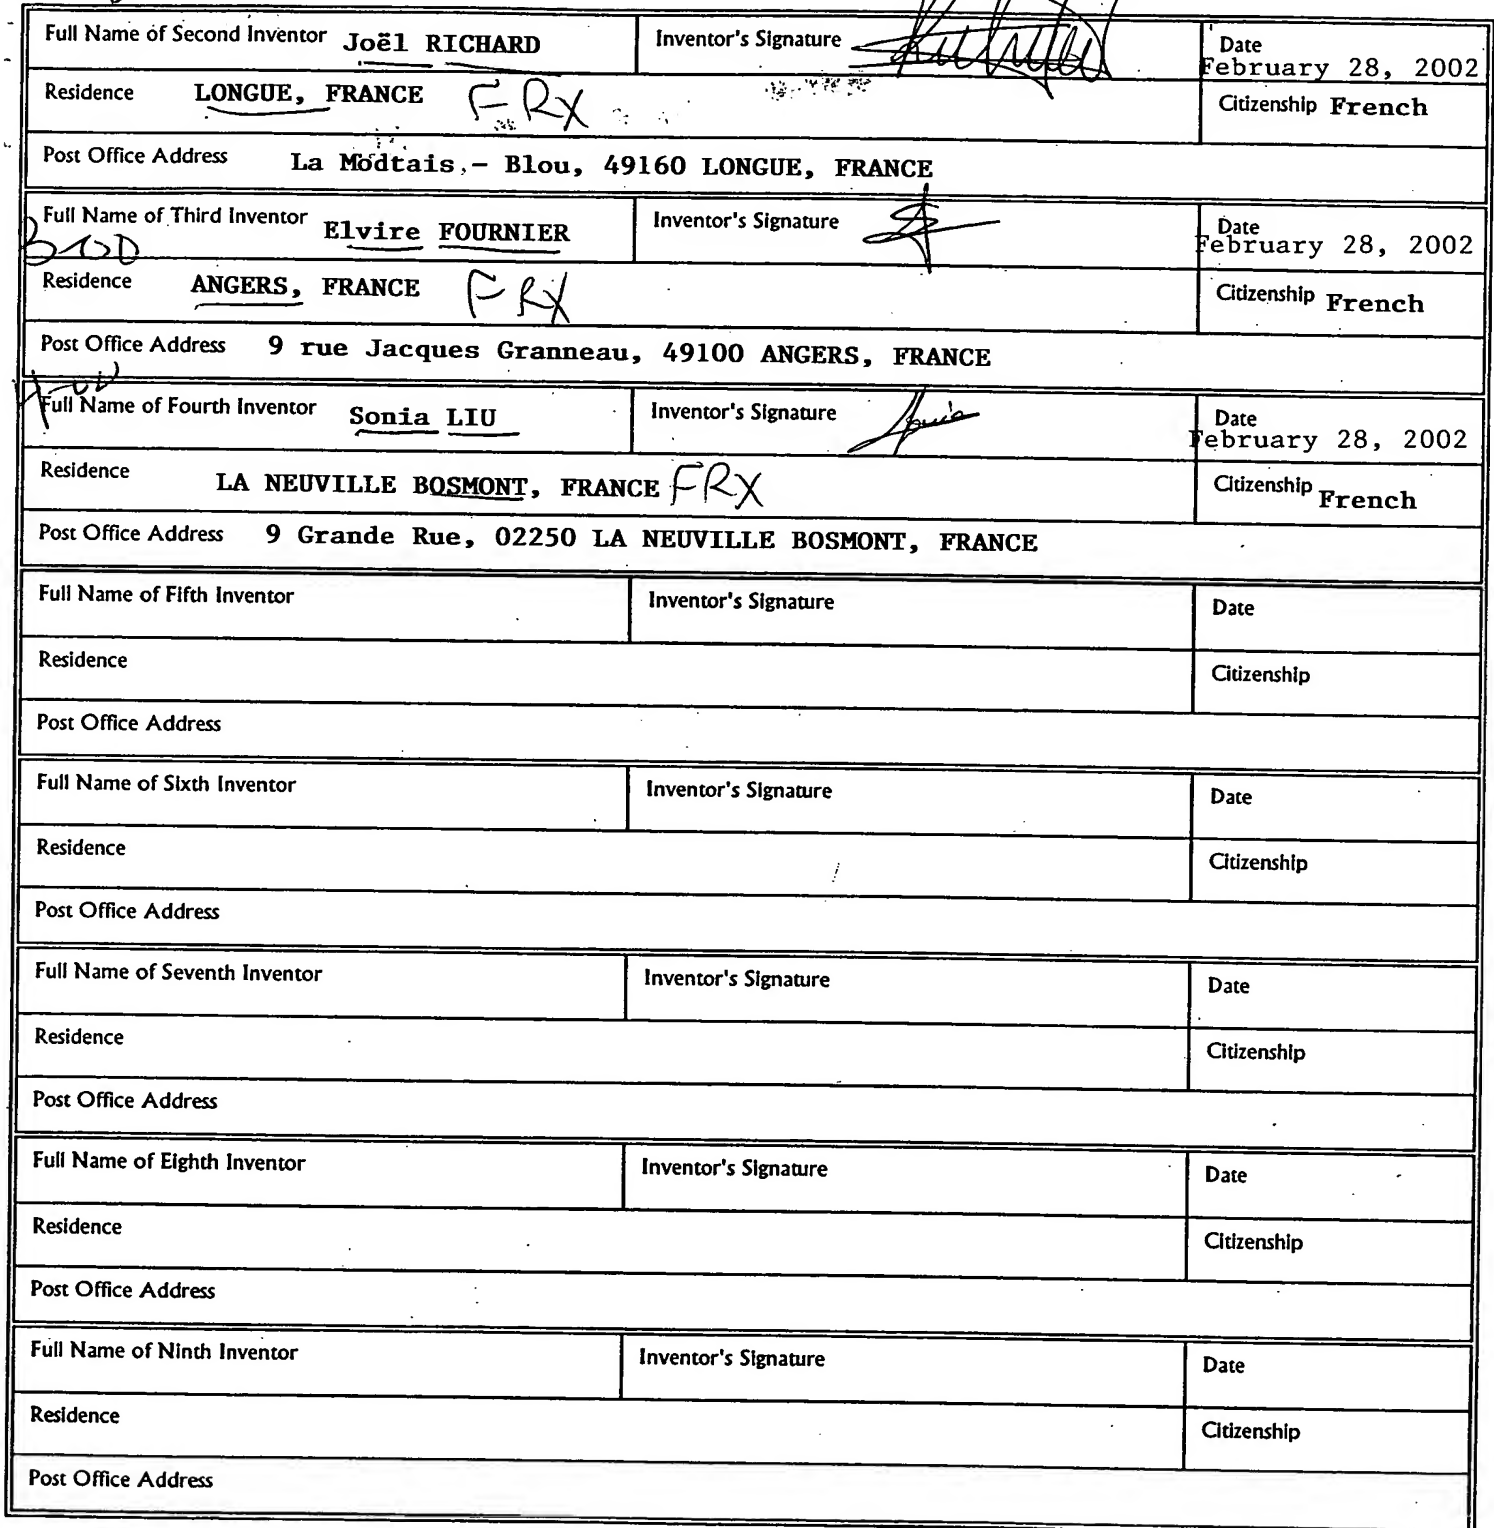 Full Name of Second Inventor Joël RICHARD Inventor's Signature Date February 28, 2002
Residence LONGUE, FRANCE FRX Citizenship French
Post Office Address La Modtais,- Blou, 49160 LONGUE, FRANCE
Full Name of Third Inventor Elvire FOURNIER Inventor's Signature Date February 28, 2002
Residence ANGERS, FRANCE FRX Citizenship French
Post Office Address 9 rue Jacques Granneau, 49100 ANGERS, FRANCE
Full Name of Fourth Inventor Sonia LIU Inventor's Signature Sonia Date February 28, 2002
Residence LA NEUVILLE BOSMONT, FRANCE FRX Citizenship French
Post Office Address 9 Grande Rue, 02250 LA NEUVILLE BOSMONT, FRANCE
Full Name of Fifth Inventor Inventor's Signature Date
Residence Citizenship
Post Office Address
Full Name of Sixth Inventor Inventor's Signature Date
Residence Citizenship
Post Office Address
Full Name of Seventh Inventor Inventor's Signature Date
Residence Citizenship
Post Office Address
Full Name of Eighth Inventor Inventor's Signature Date
Residence Citizenship
Post Office Address
Full Name of Ninth Inventor Inventor's Signature Date
Residence Citizenship
Post Office Address